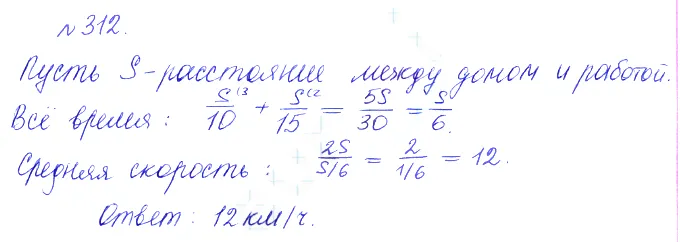 №312.
Пусть S-расстояние между домом и работой.
Всё время: S⁽³/10 + S⁽²/15 = 5S/30 = S/6.
Средняя скорость: 2S/S/6 = 2/1/6 = 12.
Ответ: 12 км/ч.